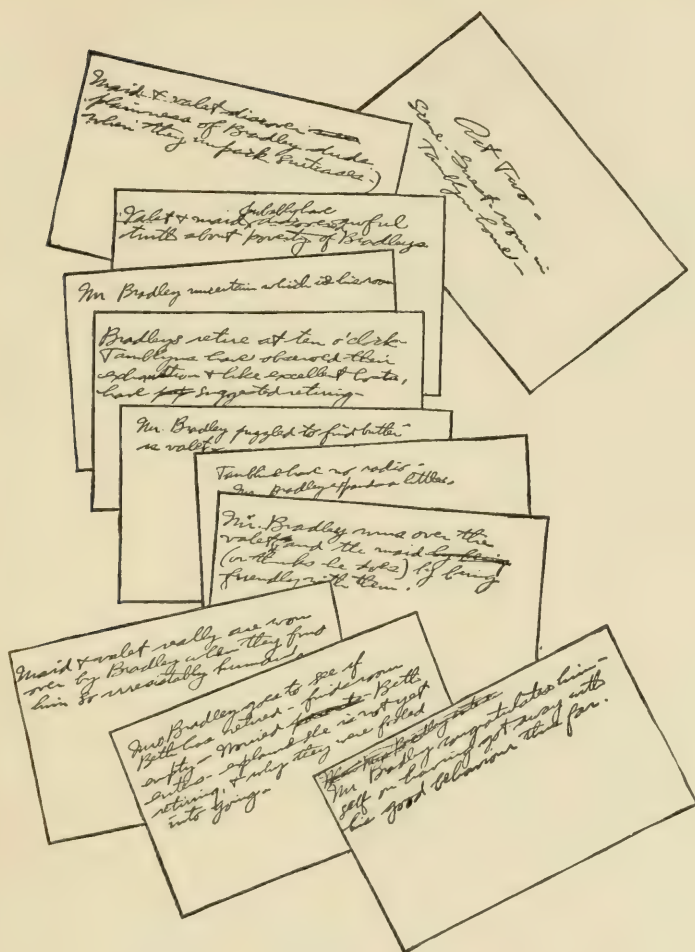 Maid & valet discover
plainness of Bradley duds
when they unpack suitcases.)
Act Two -
Scene: Guest room in
Tamblyn home -
probably have
Valet & maid discovered awful
truth about poverty of Bradleys
Mr. Bradley uncertain which is his room
Bradleys retire at ten o'clock -
Tamblyns have observed their
exhaustion & like excellent hosts,
have suggested retiring -
Mr. Bradley puzzled to find butler
is valet -
Tamblyns have no radio -
Mr. Bradley a little.
Mr. Bradley wins over the
valet and the maid by being
(or thinks he does) by being
friendly with them.
Maid & valet really are won
over by Bradley when they find
him so irresistably
Mrs. Bradley goes to see if
Beth has retired - finds room
empty - worried - Beth
enters - explains she is not yet
retiring, & why they were fooled
into going -
Mr. Bradley enter
Mr. Bradley congratulates him-
self on having got away with
his good behaviour thus far.